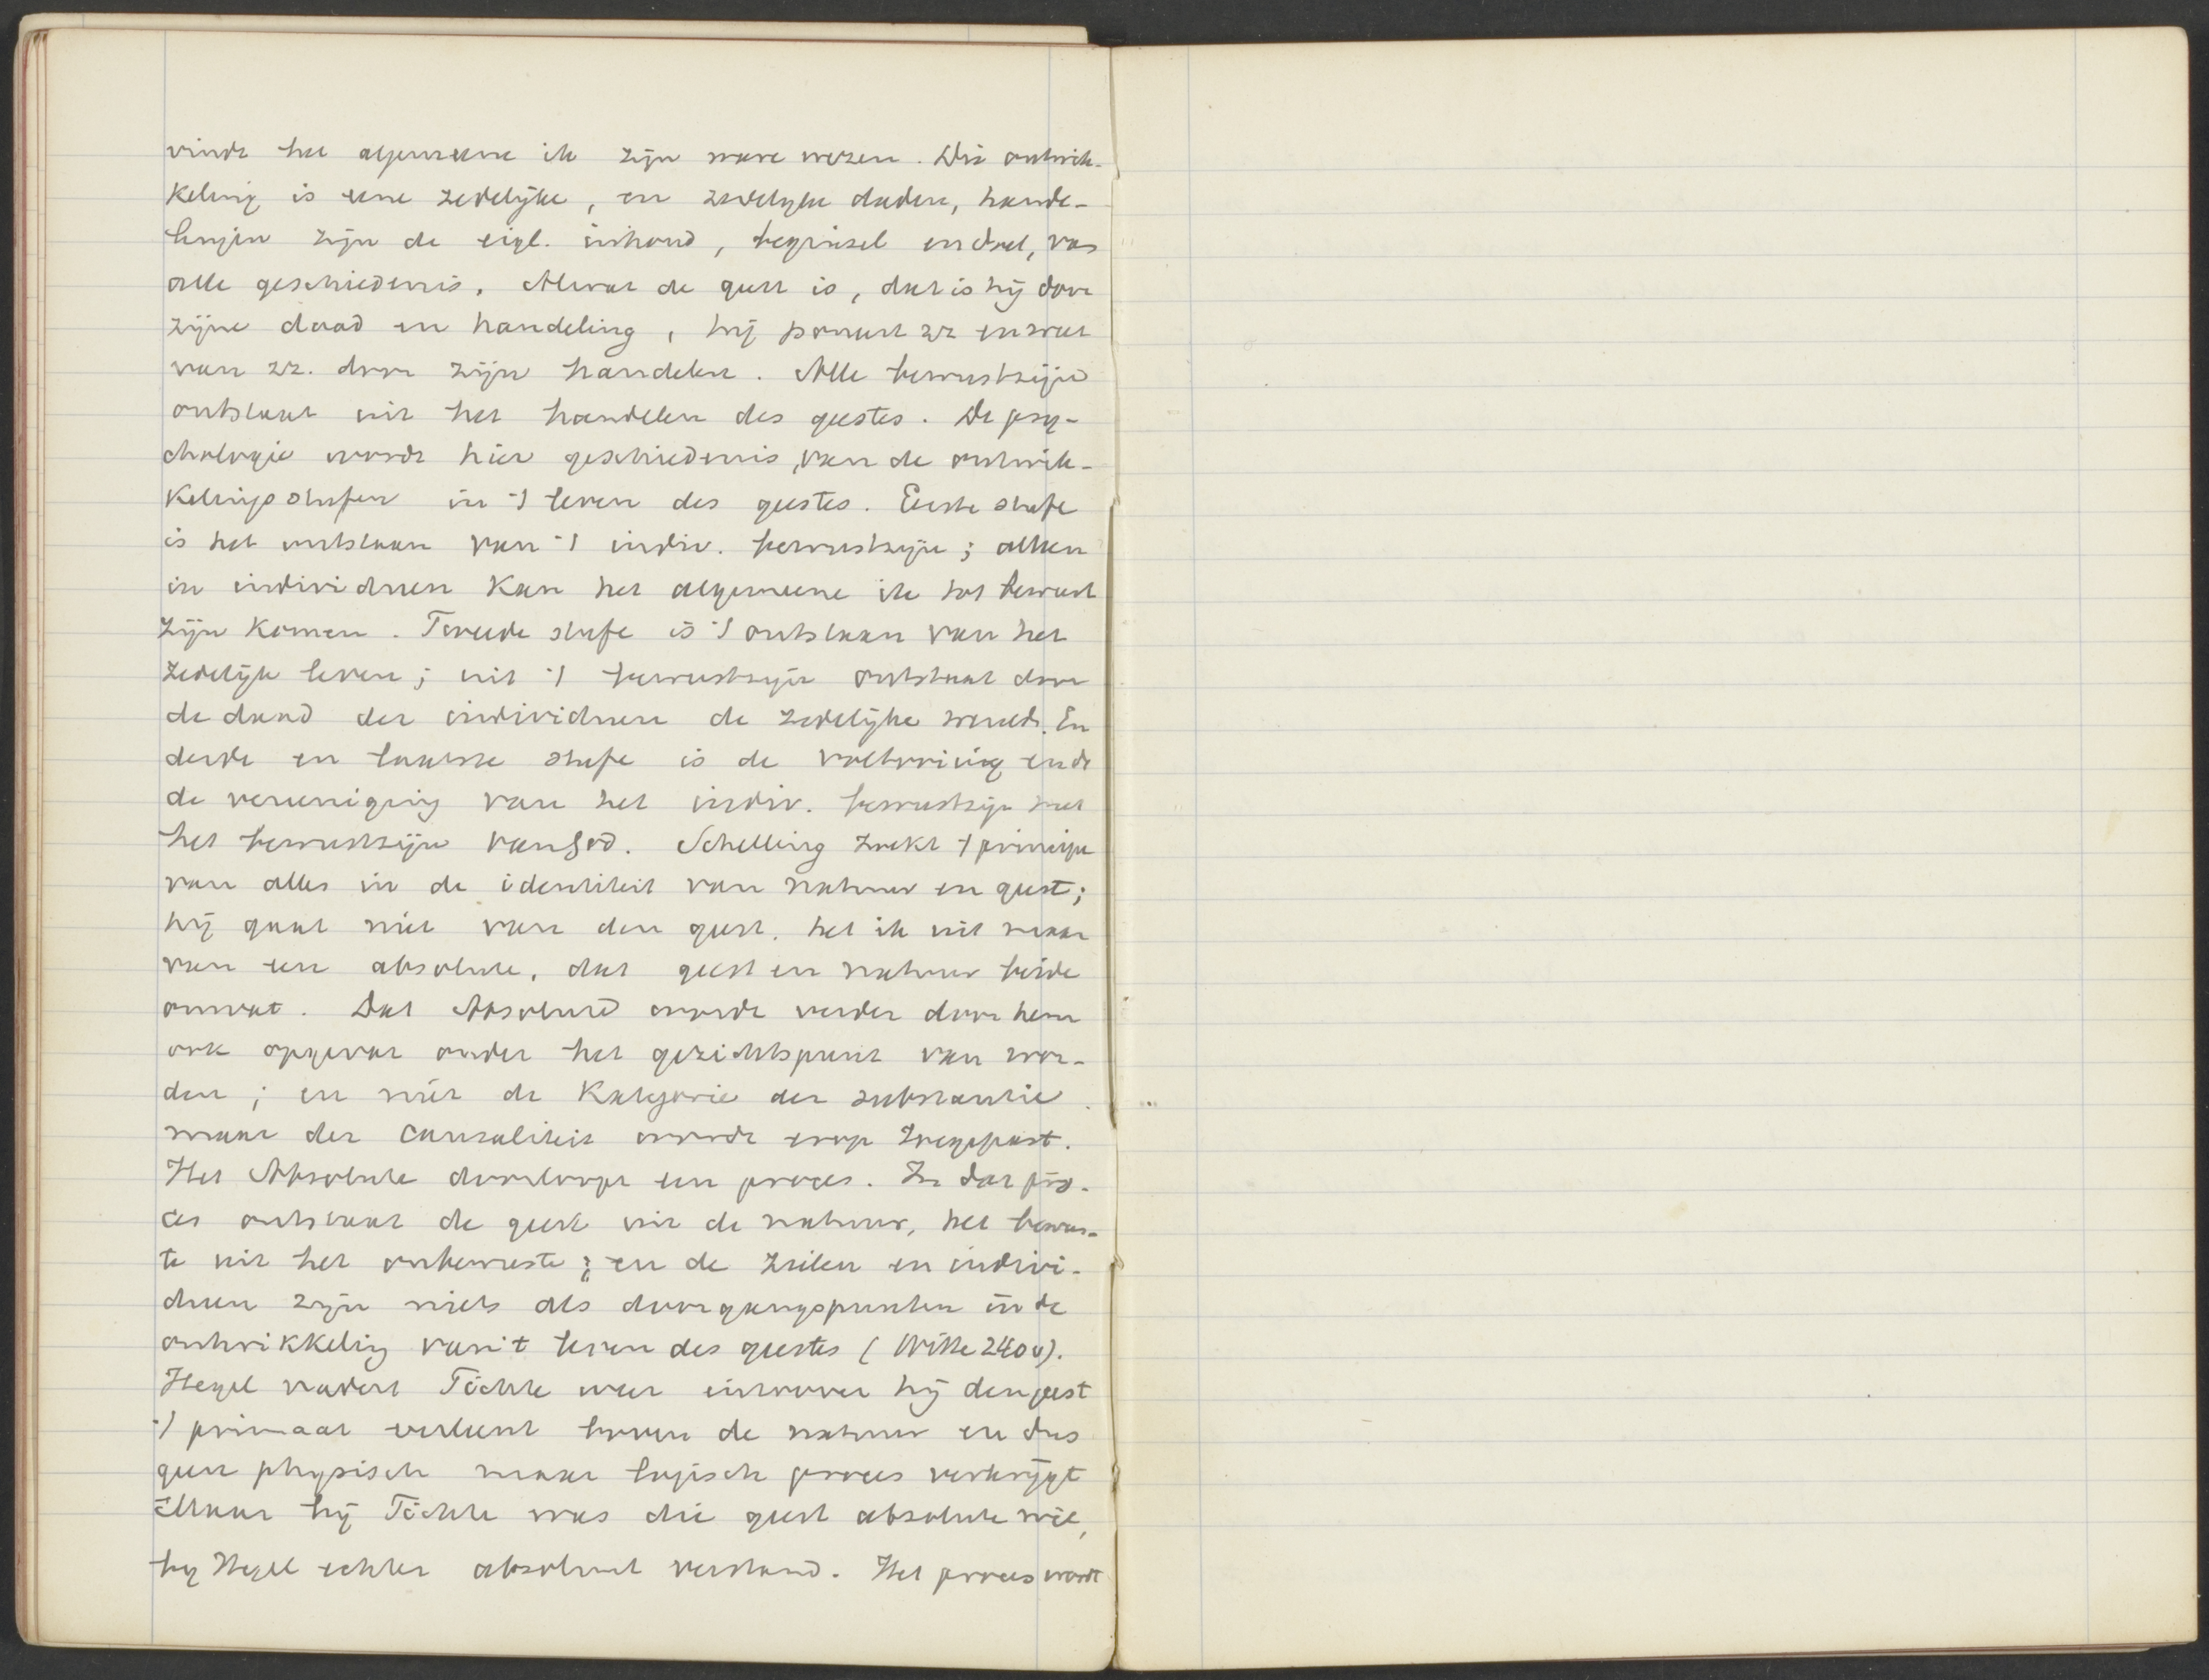 vindt het algemeene ik zijn ware wezen. Die ontwik-
keling is eene zedelijke, en zedelijke daden, hande-
lingen zijn de eigl. inhoud, beginsel en doel, van
alle geschiedenis. Alwat de geest is, dat is hij door
zijne daad en handeling, hij poneert zz en wat
van zz. door zijn handelen. Alle bewustzijn
ontstaat uit het handelen des geestes. De psy-
chologie wordt hier geschiedenis, van de ontwik-
kelingsstufen in 't leven des geestes. Eerste stufe
is het ontstaan van 't indiv. bewustzijn; alleen
in individuen kan het algemeene ik tot bewust
zijn komen. Tweede stufe is 't ontstaan van het
zedelijk leven; uit 't bewustzijn ontstaat door
de daad der individuen de zedelijke wereld. En
derde en laatste stufe is de voltooiing en de
de vereeniging van het indiv. bewustzijn met
het bewustzijn van God. Schelling zoekt 't principe
van alles in de identiteit van natuur en geest;
hij gaat niet van den geest, het ik uit maar
van een absolute, dat geest en natuur beide
omvat. Dat Absolute wordt verder door hem
ook opgevat onder het gezichtspunt van wor-
den; en niet de Kategorie der substantie
maar der causaliteit wordt erop toegepast.
Het Absolute doorloopt een proces. In dat pro-
ces ontstaat de geest uit de natuur, het bewus-
te uit het onbewuste; en de zielen en indivi-
duen zijn niets als doorgangspunten in de
ontwikkeling van 't leven des geestes (Witte 240v).
Hegel nadert Fichte weer inzoover hij den geest
't primaat verleent boven de natuur en dus
geen physisch maar logisch proces verkrijgt
Maar bij Fichte was die geest absolute wil,
bij Hegel echter absoluut verstand. Het proces wordt